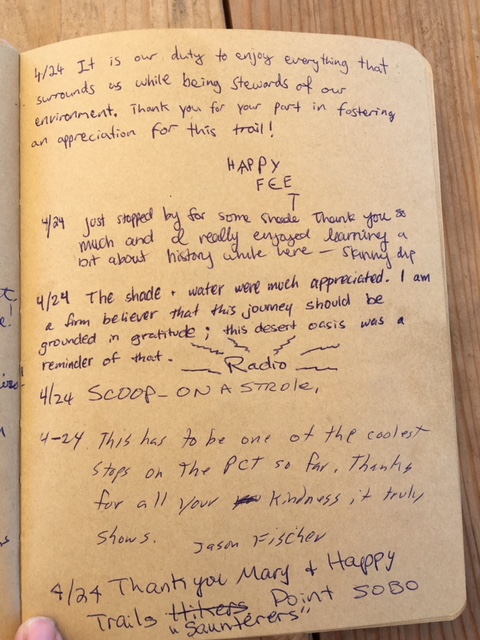 4/24 It is our duty to enjoy everything that
surrounds us while being stewards of our
environment. Thank you for your part in fostering
an appreciation for this trail!
HAPPY
FEE
T
4/24 just stopped by for some shade Thank you so
much and I really enjoyed learning a
bit about history while here - Skinny dip
4/24 The shade + water were much appreciated. I am
a firm believer that this journey should be
grounded in gratitude; this desert oasis was a
reminder of that.
Radio
4/24 SCOOP - ON A STROLL,
4-24 This has to be one of the coolest
stops on the PCT so far. Thanks
for all your kindness, it truly
shows. Jason Fischer
4/24 Thank you Mary + Happy
Trails Hikers Point SOBO
"Saunterers"